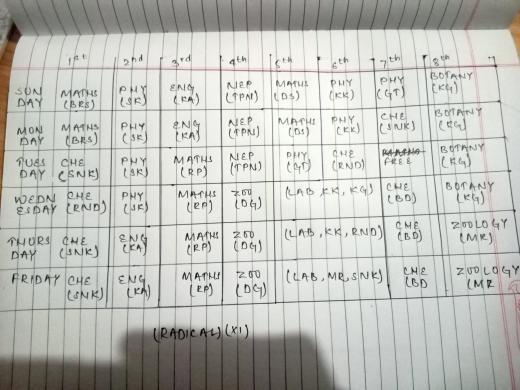 1st 2nd 3rd 4th 5th 6th 7th 8th
SUN DAY MATHS (BRS) PHY (SK) ENG (KA) NEP (TPN) MATHS (DS) PHY (KK) PHY (GT) BOTANY (KG)
MON DAY MATHS (BRS) PHY (SK) ENG (KA) NEP (TPN) MATHS (DS) PHY (KK) CHE (SNK) BOTANY (KG)
TUES DAY CHE (SNK) PHY (SK) MATHS (RP) NEP (TPN) PHY (GT) CHE (RND) FREE BOTANY (KG)
WEDN ESDAY CHE (RND) PHY (SK) MATHS (RP) ZOO (DG) (LAB, KK, KG) CHE (BD) BOTANY (KG)
THURS DAY CHE (SNK) ENG (KA) MATHS (RP) ZOO (DG) (LAB, KK, RND) CHE (BD) ZOOLOGY (MR)
FRIDAY CHE (SNK) ENG (KA) MATHS (RP) ZOO (DG) (LAB, MR, SNK) CHE (BD ZOOLOGY (MR
(RADICAL) (XI)